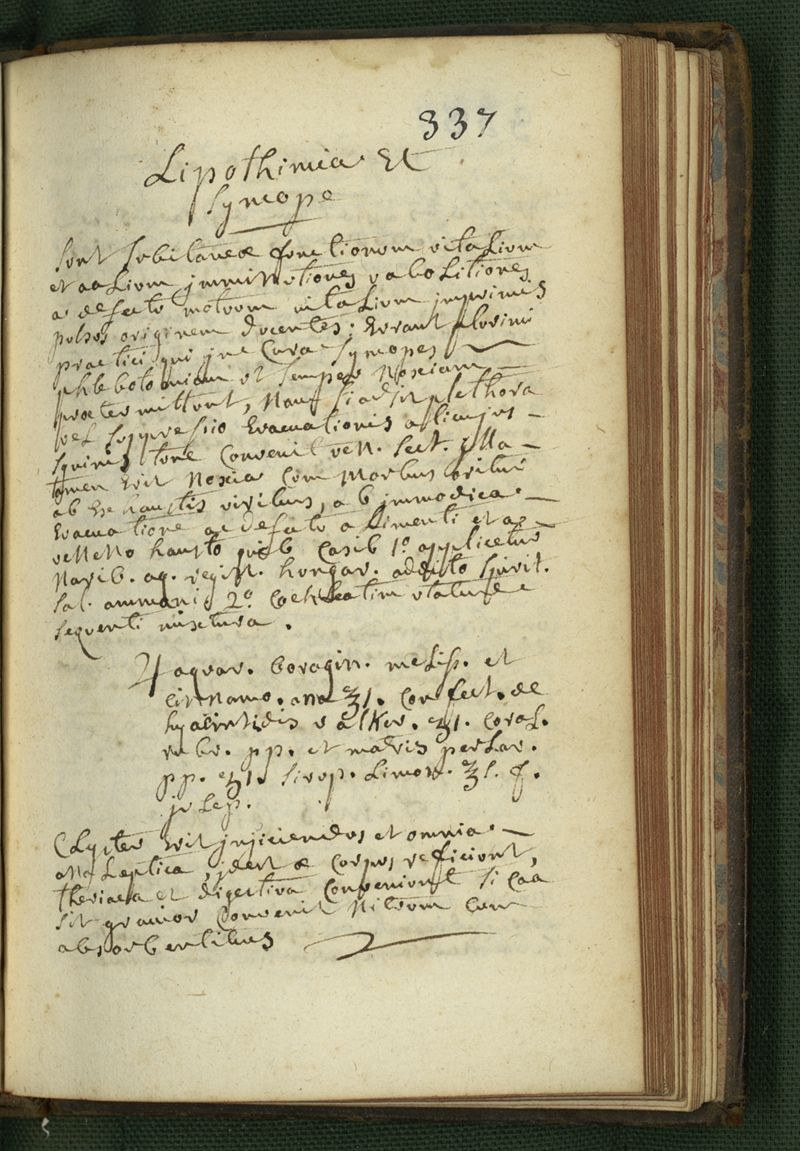 337
Lipothimia Et
Syncope
Sunt subitaneæ functionum vitalium
et aalium imminutiones vabolitiones
a defectu motuum vitalium imprimis
pulsus originem ducentes; Errant plurimi
practici qui in Cura Syncopes
phlebotomiam ut semper Noxiam
prætermittunt, Nam si adsit plethora
vel suppressio Evacuationis alicujus
tunc Convenit ven. sect. illa
tamen Erit Noxia Cum Morbus oritur
ab Exhaustis viribus, ab immodica
Evacuatione ac defectu alimenti et a
veneno hausto quib Casib 1º applicetur
Narib. aq. regin. hungar. addito spirit.
sal. ammonic 2º Cochleatim utatur
sequenti mixtura.
♃ aquar. boragin. melis. et
cinnamo. ana ℥1. Confect. de
hyacintidis v alker. ʒ1. Coral.
rubr. pp. et matris perlar.
pp. ʒ1. sirup. Limon. ℥1. f.
julep.
Clyster Erit injiciendus et omnia
analeptica, idest æ Corpus reficiunt,
theriaca et digestiva Conveniunt si Caa
sit gravior Convenit Nitrum cum
absorbentibus